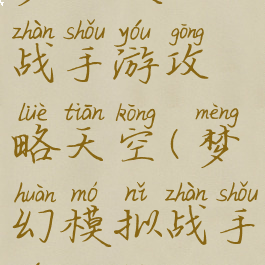 zhàn shǒu yóu gōng
战手游攻
lüè tiān kōng mèng
略天空(梦
huàn mó nǐ zhàn shǒu
幻模拟战手